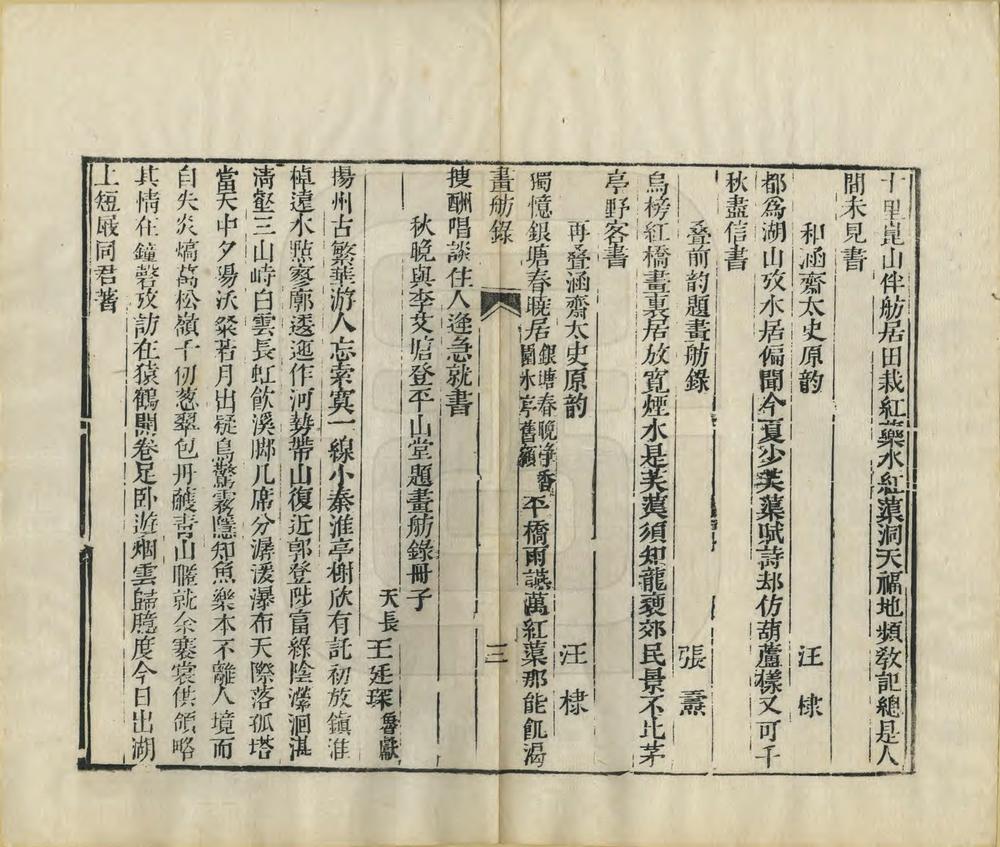 十里崑山伴舫居田栽紅藥水紅蕖洞天福地頻教記總是人
間未見書
和涵齋太史原韵　汪棣
都爲湖山攷水居偏聞今夏少芙蕖賦詩却仿葫蘆樣又可千
秋盡信書
叠前韵題畫舫錄　張燾
烏榜紅橋畫裏居放寬煙水是芙蕖須知龍襲郊民景不比茅
亭野客書
再叠涵齋太史原韵　汪棣
獨憶銀塘春曉居銀塘春曉淨香園水亭舊額平橋雨讌萬紅蕖那能飢渴
畫舫錄　三
搜酬唱談住人逄急就書
秋晚與李艾塘登平山堂題畫舫錄冊子
天長王廷琛魯獻
揚州古繁華游人忘索寞一線小秦淮亭榭欣有託初放鎮淮
棹遠水點寥廓透迤作河勢帶山復近郭登陟富綠陰瀠洄湛
淸壑三山峙白雲長虹飮溪脚几席分潺湲瀑布天際落孤塔
當天中夕陽沃粲若月出疑鳥驚霧隱知魚樂本不離人境而
自失炎熇萬松嶺千仞葱翠包丹雘靑山曬就余褰裳供領略
其情在鐘磬攷訪在猿鶴開卷足卧遊烟雲歸臆度今日出湖
上短屐同君著